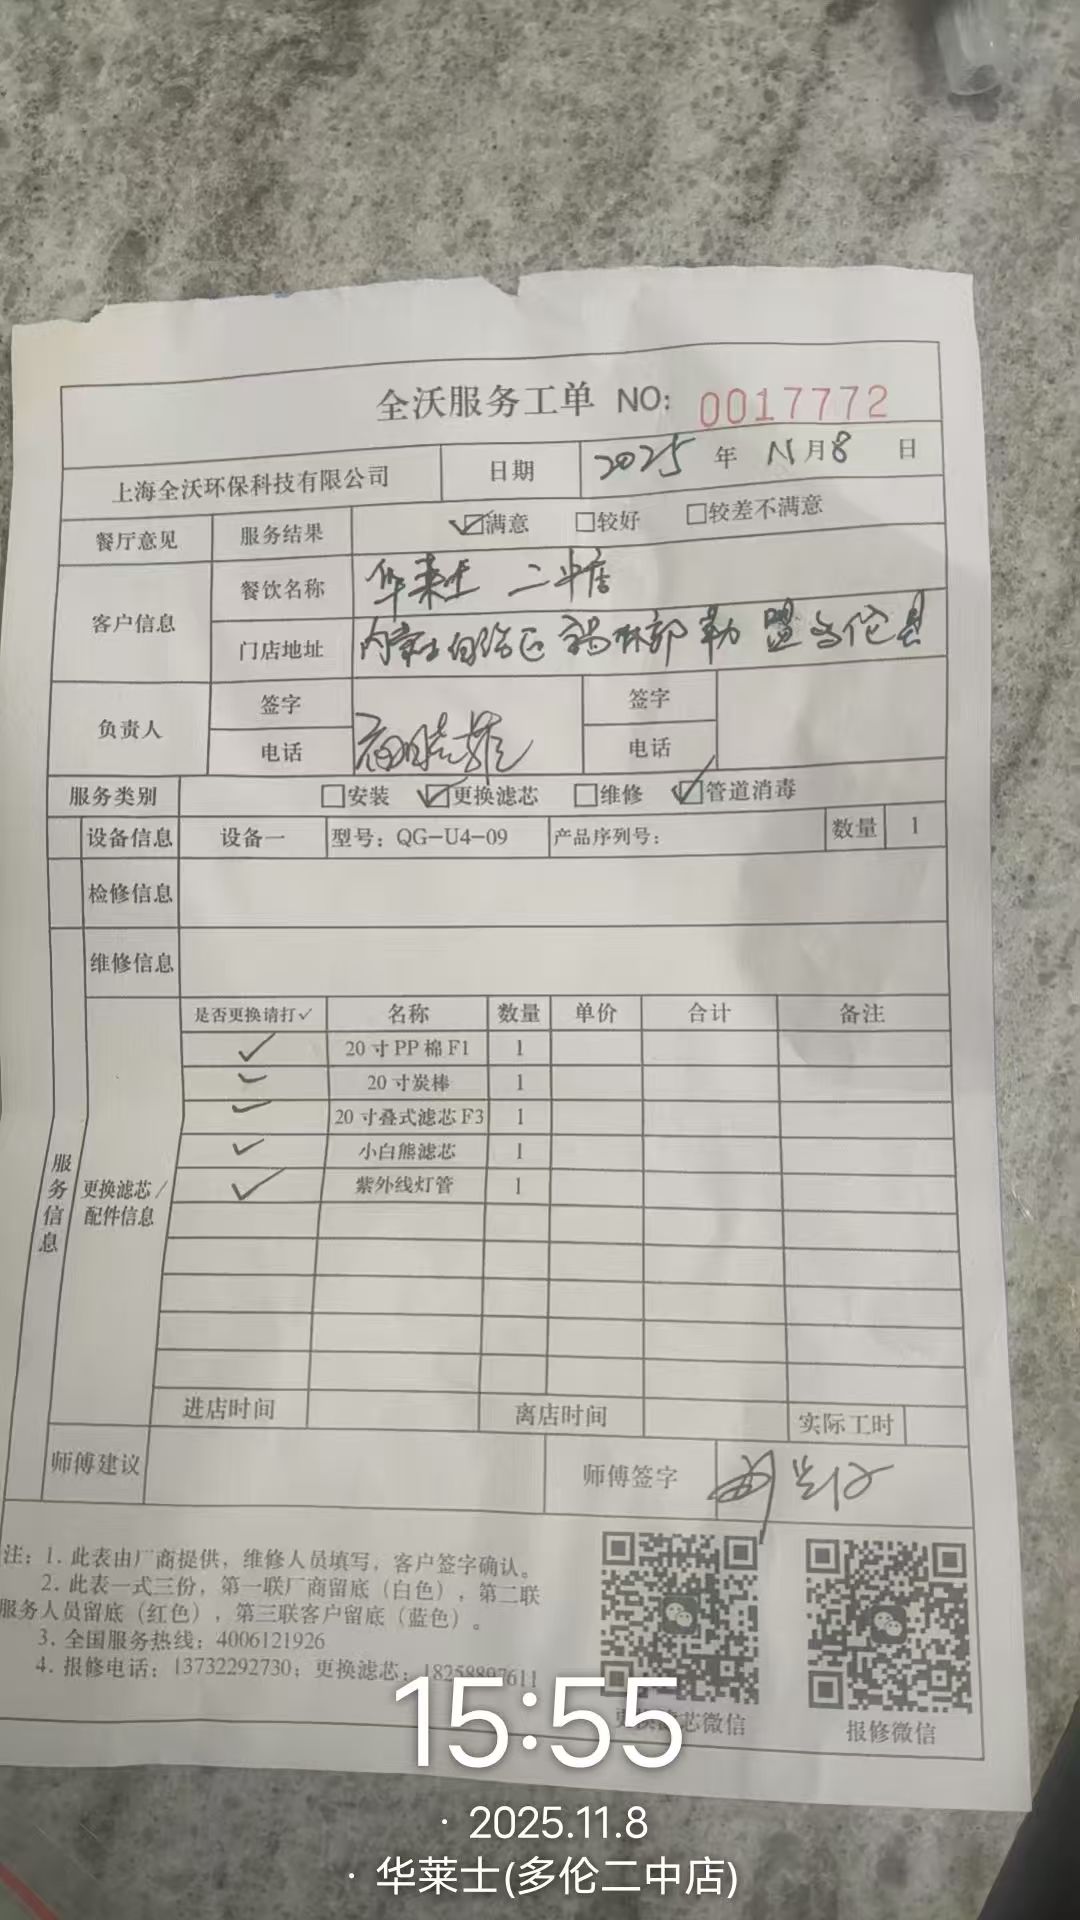 全沃服务工单 NO: 0017772
上海全沃环保科技有限公司 日期 2025 年 11 月 8 日
餐厅意见 服务结果 ☑满意 □较好 □较差不满意
客户信息 餐饮名称 华莱士 二中店
门店地址 内蒙古自治区 锡林郭勒盟多伦县
负责人 签字 签字
电话 电话
服务类别 □安装 ☑更换滤芯 □维修 ☑管道消毒
设备信息 设备一 型号：QG-U4-09 产品序列号： 数量 1
检修信息
维修信息
服务信息
更换滤芯/
配件信息
是否更换请打✓ 名称 数量 单价 合计 备注
✓ 20寸PP棉F1 1
✓ 20寸炭棒 1
✓ 20寸叠式滤芯F3 1
✓ 小白熊滤芯 1
✓ 紫外线灯管 1
进店时间 离店时间 实际工时
师傅建议 师傅签字
注：1. 此表由厂商提供，维修人员填写，客户签字确认。
2. 此表一式三份，第一联厂商留底（白色），第二联
服务人员留底（红色），第三联客户留底（蓝色）。
3. 全国服务热线：4006121926
4. 报修电话：13732292730；更换滤芯：18258897611
更换滤芯微信 报修微信
15:55
· 2025.11.8
· 华莱士(多伦二中店)